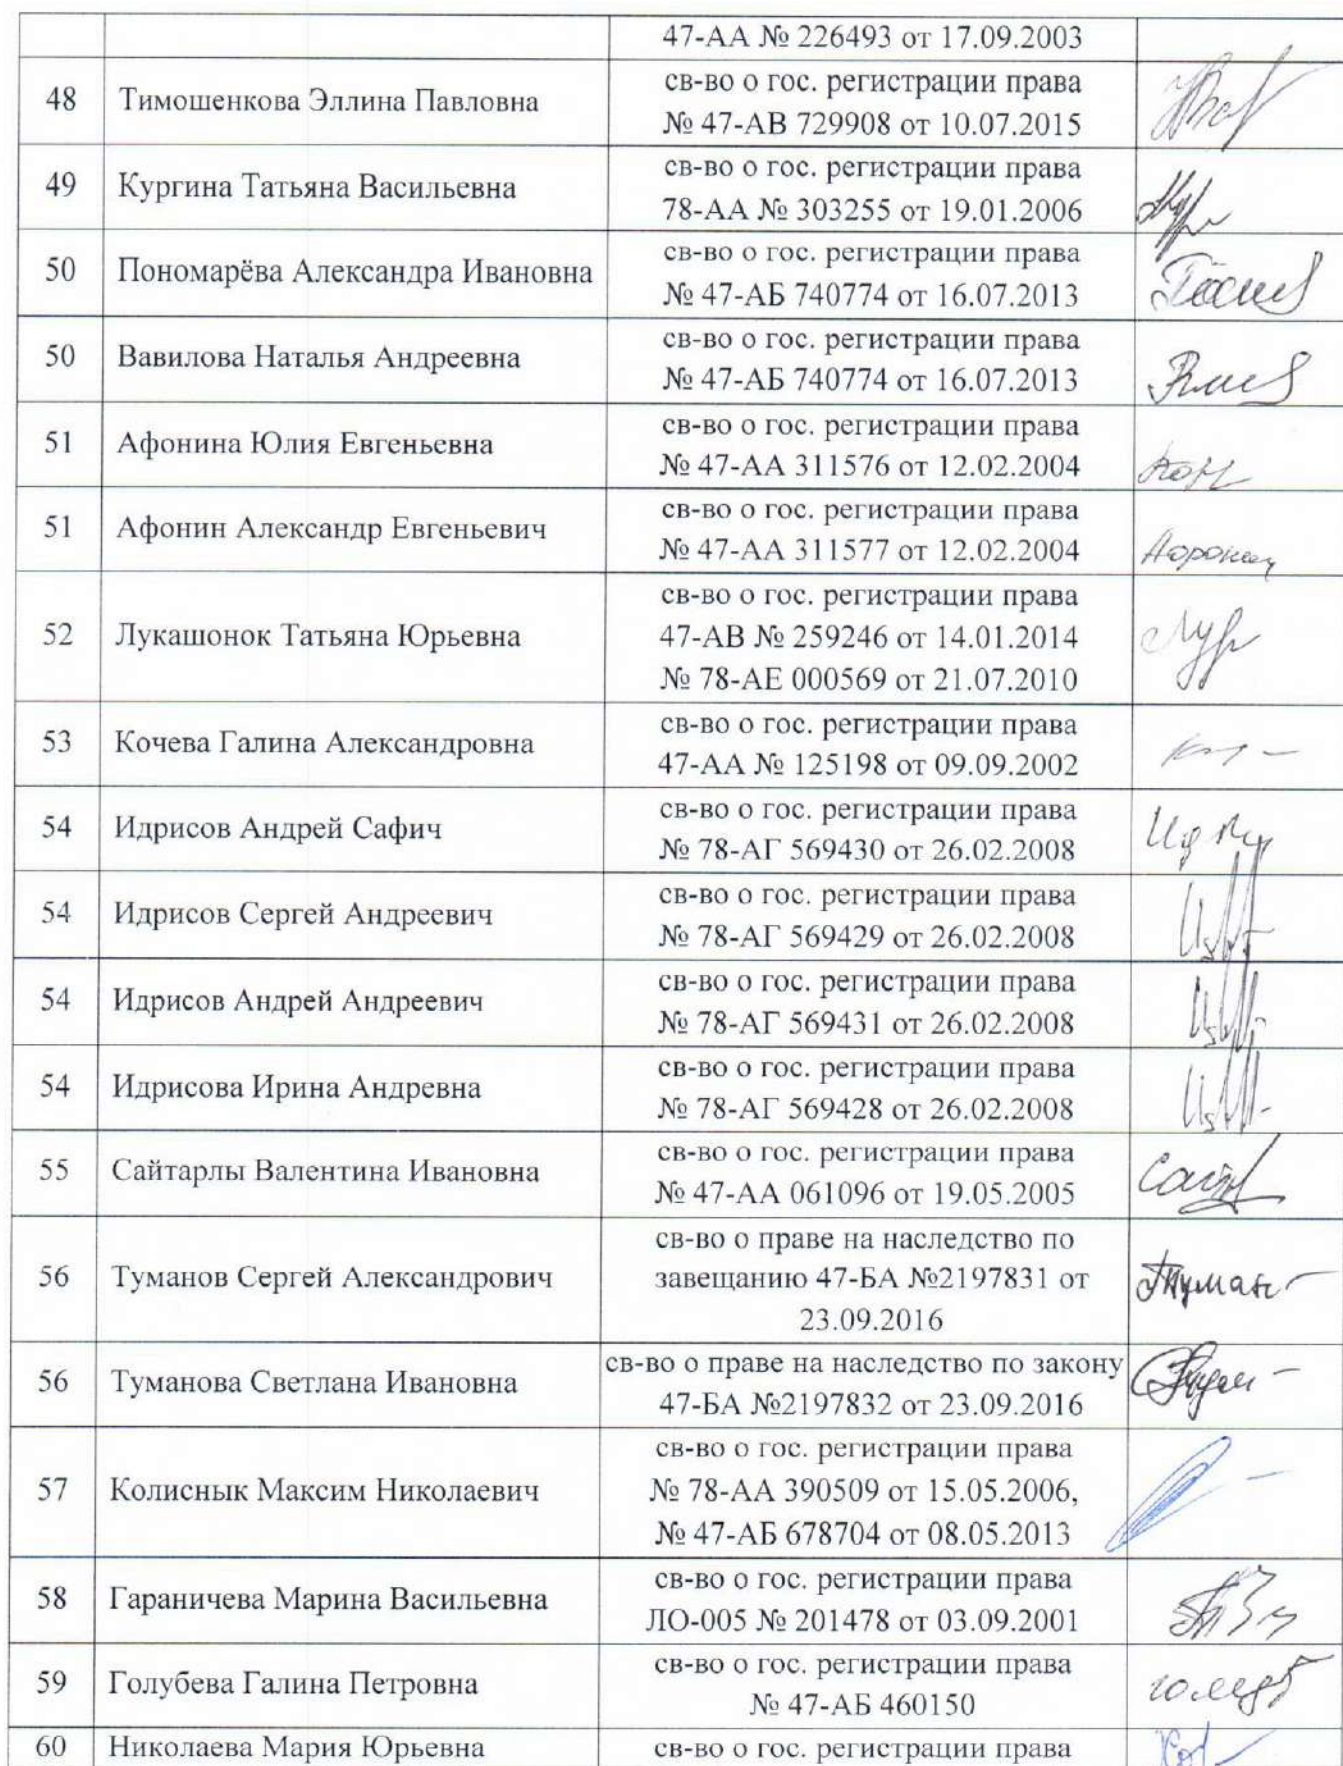 47-АА № 226493 от 17.09.2003
48 Тимошенкова Эллина Павловна
св-во о гос. регистрации права
№ 47-АВ 729908 от 10.07.2015
49 Кургина Татьяна Васильевна
св-во о гос. регистрации права
78-АА № 303255 от 19.01.2006
50 Пономарёва Александра Ивановна
св-во о гос. регистрации права
№ 47-АБ 740774 от 16.07.2013
50 Вавилова Наталья Андреевна
св-во о гос. регистрации права
№ 47-АБ 740774 от 16.07.2013
51 Афонина Юлия Евгеньевна
св-во о гос. регистрации права
№ 47-АА 311576 от 12.02.2004
51 Афонин Александр Евгеньевич
св-во о гос. регистрации права
№ 47-АА 311577 от 12.02.2004
52 Лукашонок Татьяна Юрьевна
св-во о гос. регистрации права
47-АВ № 259246 от 14.01.2014
№ 78-АЕ 000569 от 21.07.2010
53 Кочева Галина Александровна
св-во о гос. регистрации права
47-АА № 125198 от 09.09.2002
54 Идрисов Андрей Сафич
св-во о гос. регистрации права
№ 78-АГ 569430 от 26.02.2008
54 Идрисов Сергей Андреевич
св-во о гос. регистрации права
№ 78-АГ 569429 от 26.02.2008
54 Идрисов Андрей Андреевич
св-во о гос. регистрации права
№ 78-АГ 569431 от 26.02.2008
54 Идрисова Ирина Андревна
св-во о гос. регистрации права
№ 78-АГ 569428 от 26.02.2008
55 Сайтарлы Валентина Ивановна
св-во о гос. регистрации права
№ 47-АА 061096 от 19.05.2005
56 Туманов Сергей Александрович
св-во о праве на наследство по
завещанию 47-БА №2197831 от
23.09.2016
56 Туманова Светлана Ивановна
св-во о праве на наследство по закону
47-БА №2197832 от 23.09.2016
57 Колиснык Максим Николаевич
св-во о гос. регистрации права
№ 78-АА 390509 от 15.05.2006,
№ 47-АБ 678704 от 08.05.2013
58 Гараничева Марина Васильевна
св-во о гос. регистрации права
ЛО-005 № 201478 от 03.09.2001
59 Голубева Галина Петровна
св-во о гос. регистрации права
№ 47-АБ 460150
60 Николаева Мария Юрьевна
св-во о гос. регистрации права